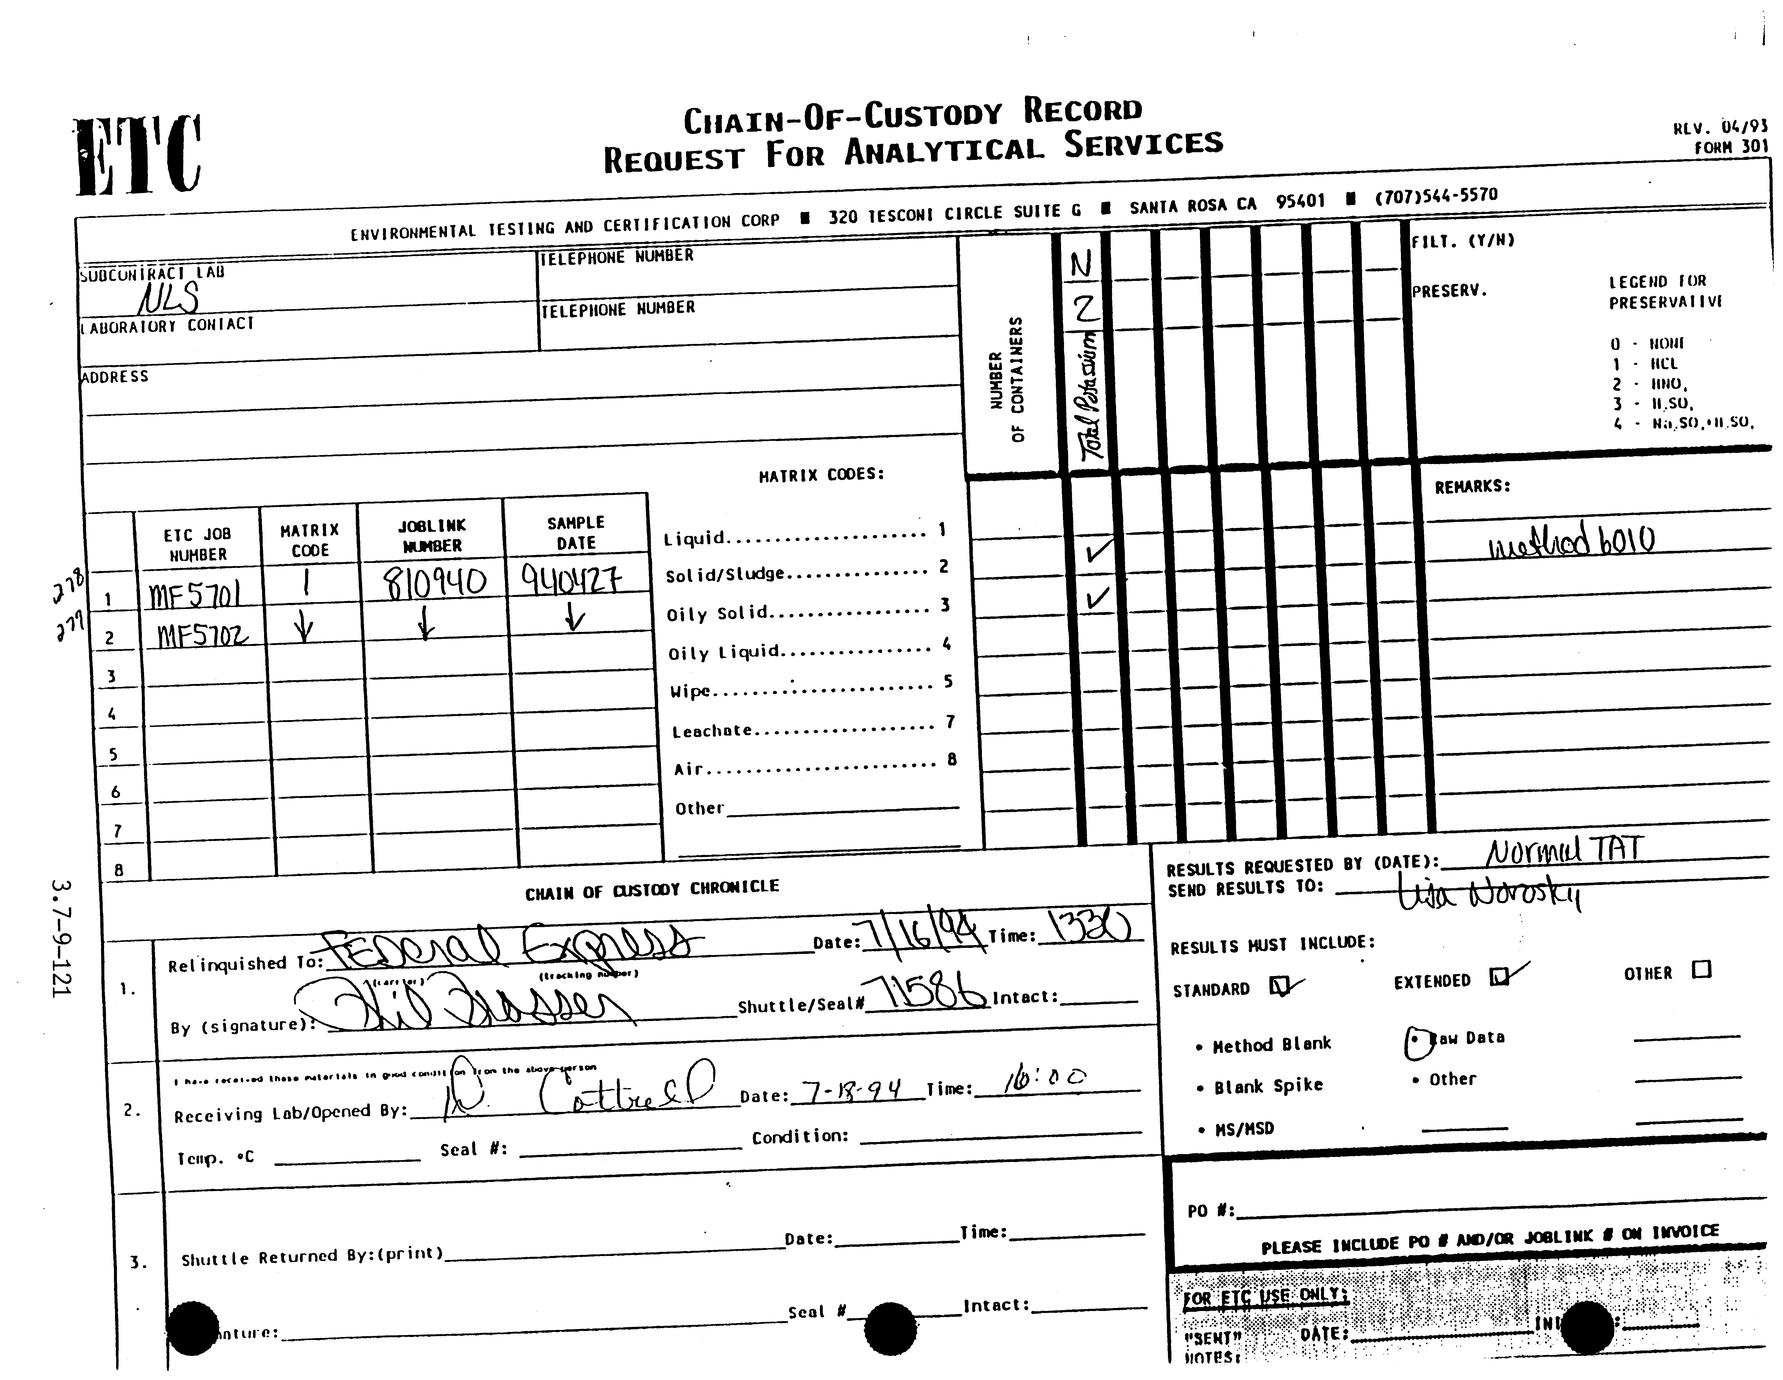 ETC
CHAIN-OF-CUSTODY RECORD
REQUEST FOR ANALYTICAL SERVICES
REV. 04/93
FORM 301
ENVIRONMENTAL TESTING AND CERTIFICATION CORP ■ 320 TESCONI CIRCLE SUITE G ■ SANTA ROSA CA 95401 ■ (707)544-5570
SUBCONTRACT LAB
NLS
TELEPHONE NUMBER
LABORATORY CONTACT
TELEPHONE NUMBER
ADDRESS
NUMBER
OF CONTAINERS
N
2
Total Potassium
FILT. (Y/N)
PRESERV.
LEGEND FOR
PRESERVATIVE
0 - NONE
1 - HCL
2 - HNO,
3 - H,SO,
4 - Na,SO,+H,SO,
MATRIX CODES:
Liquid 1
Solid/Sludge 2
Oily Solid 3
Oily Liquid 4
Wipe 5
Leachate 7
Air 8
Other
ETC JOB NUMBER MATRIX CODE JOBLINK NUMBER SAMPLE DATE
278 1 MF5701 1 810940 940427 ✓
279 2 MF5702 ↓ ↓ ↓ ✓
3
4
5
6
7
8
REMARKS:
method 6010
3.7-9-121
CHAIN OF CUSTODY CHRONICLE
1.
Relinquished To: Federal Express Date: 7/16/94 Time: 1330
(carrier) (tracking number)
By (signature): Shuttle/Seal# 71586 Intact:
2.
I have received these materials in good condition from the above person
Receiving Lab/Opened By: D. Cottrell Date: 7-18-94 Time: 16:00
Temp. °C Seal #: Condition:
3.
Shuttle Returned By:(print) Date: Time:
nature: Seal # Intact:
RESULTS REQUESTED BY (DATE): Normal TAT
SEND RESULTS TO: Lisa Norosky
RESULTS MUST INCLUDE:
STANDARD ✓ EXTENDED ✓ OTHER
• Method Blank • Raw Data
• Blank Spike • Other
• MS/MSD
PO #:
PLEASE INCLUDE PO # AND/OR JOBLINK # ON INVOICE
FOR ETC USE ONLY:
"SENT" DATE: INI :
NOTES: